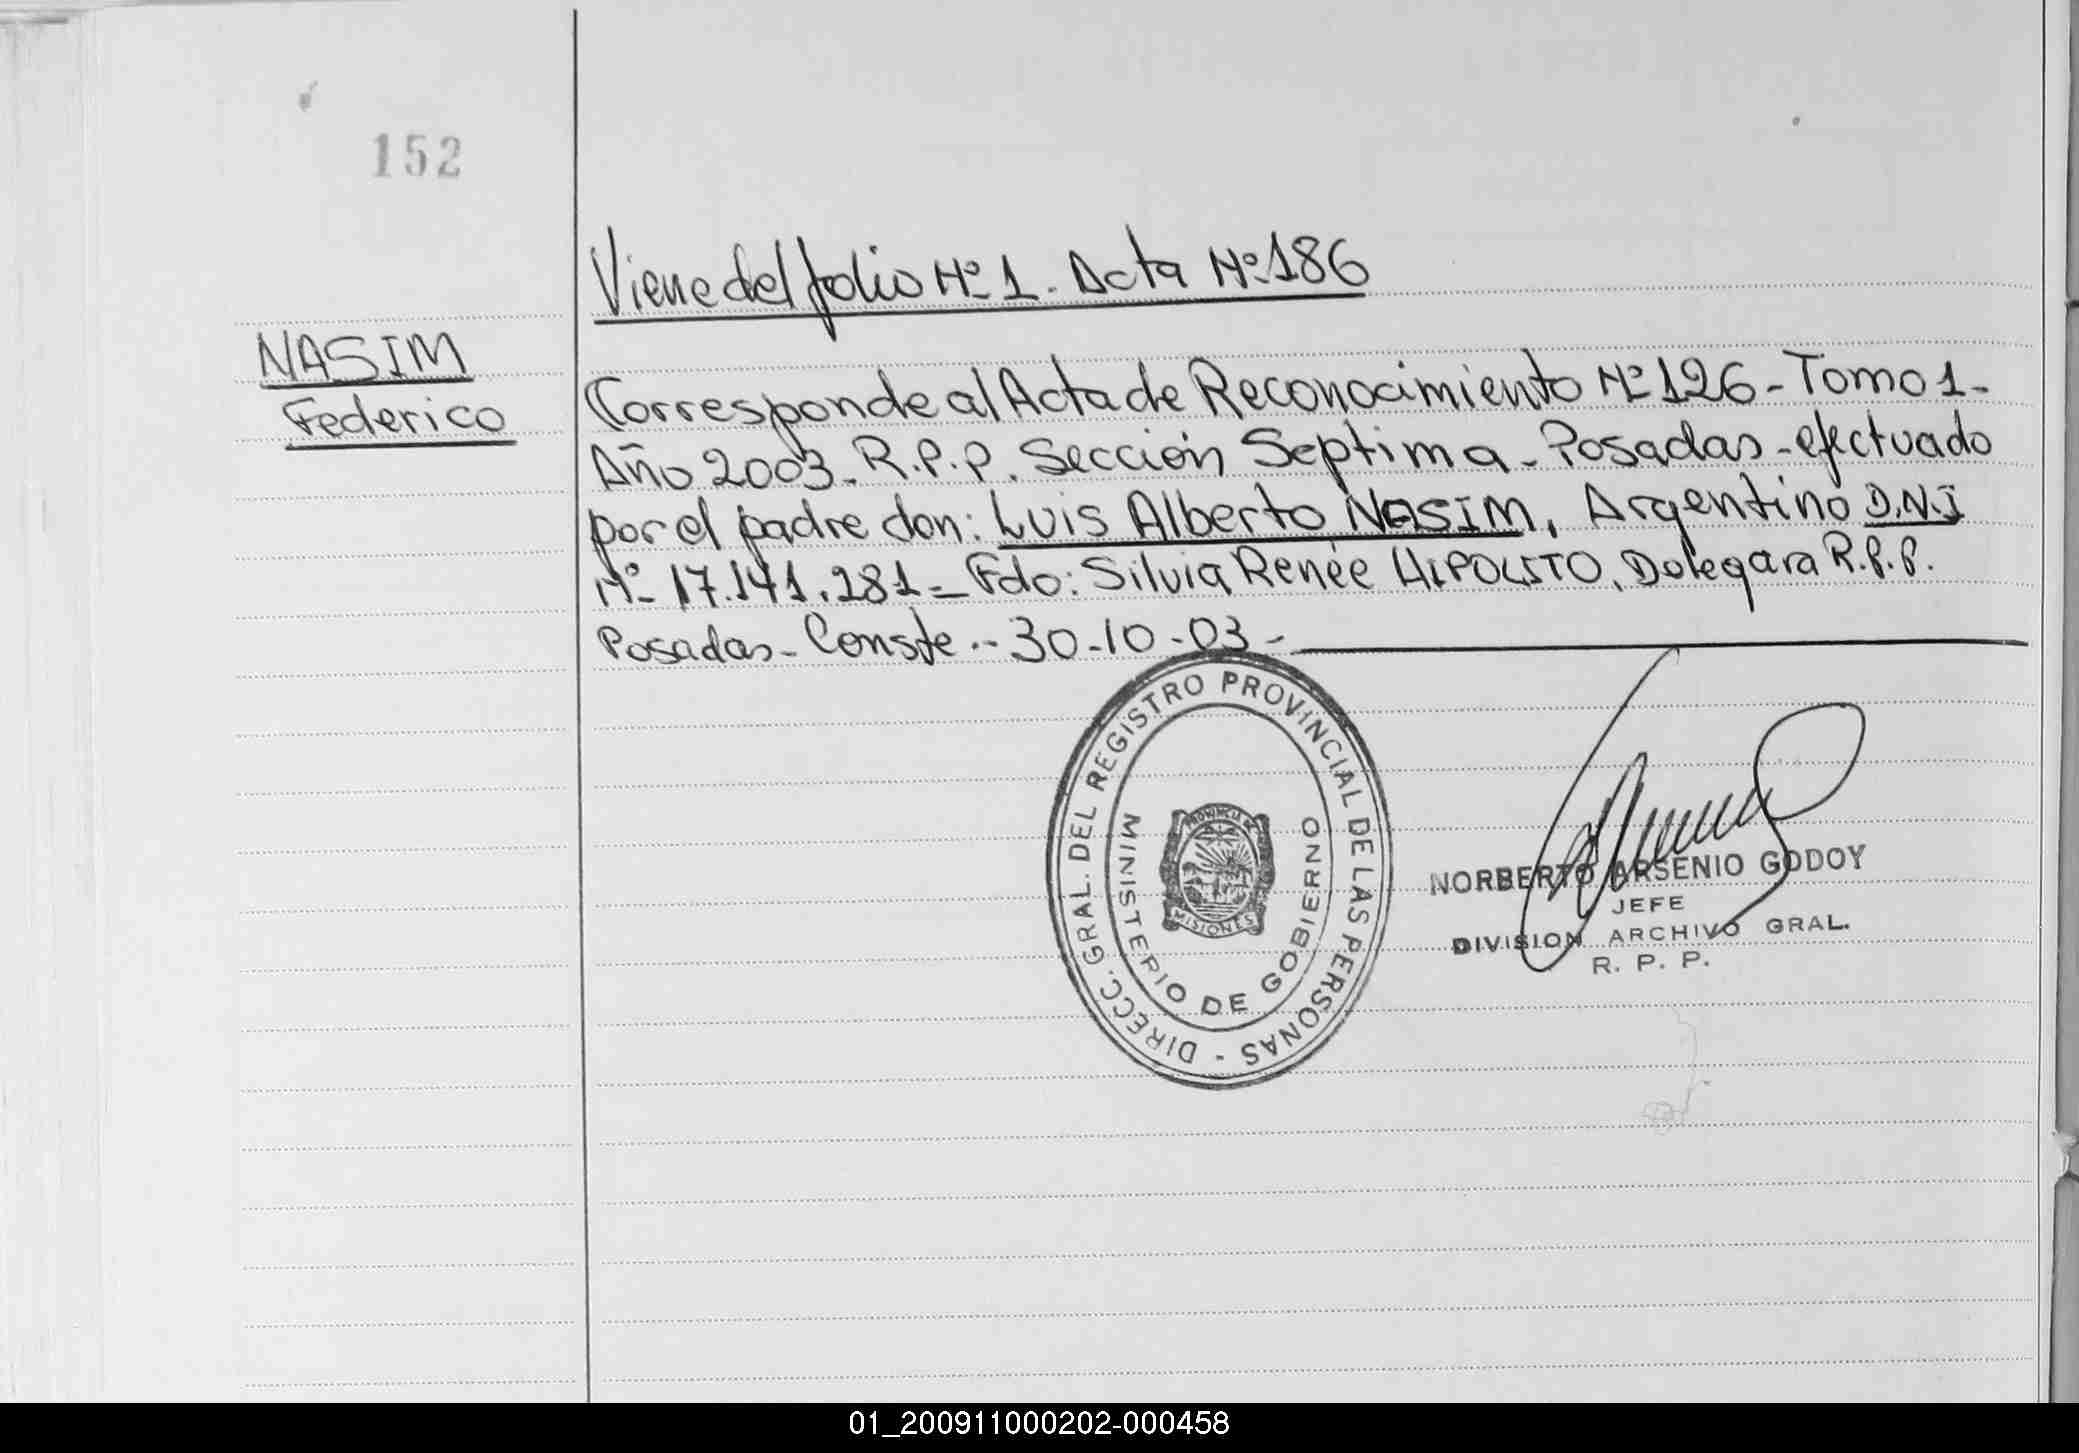 152
Viene del folio Nº 1. Acta Nº 186
NASIM
Federico
Corresponde al Acta de Reconocimiento Nº 126 - Tomo 1 -
Año 2003. R.P.P. Sección Septima - Posadas - efectuado
por el padre don: Luis Alberto NASIM, Argentino D.N.I
Nº 17.141.281 - Fdo: Silvia Renée HIPOLITO, Delegara R.P.P.
Posadas - Conste .- 30-10-03 -
DIRECC. GRAL. DEL REGISTRO PROVINCIAL DE LAS PERSONAS -
MINISTERIO DE GOBIERNO
PROVINCIA DE
MISIONES
NORBERTO ARSENIO GODOY
JEFE
DIVISION ARCHIVO GRAL.
R. P. P.
01_200911000202-000458